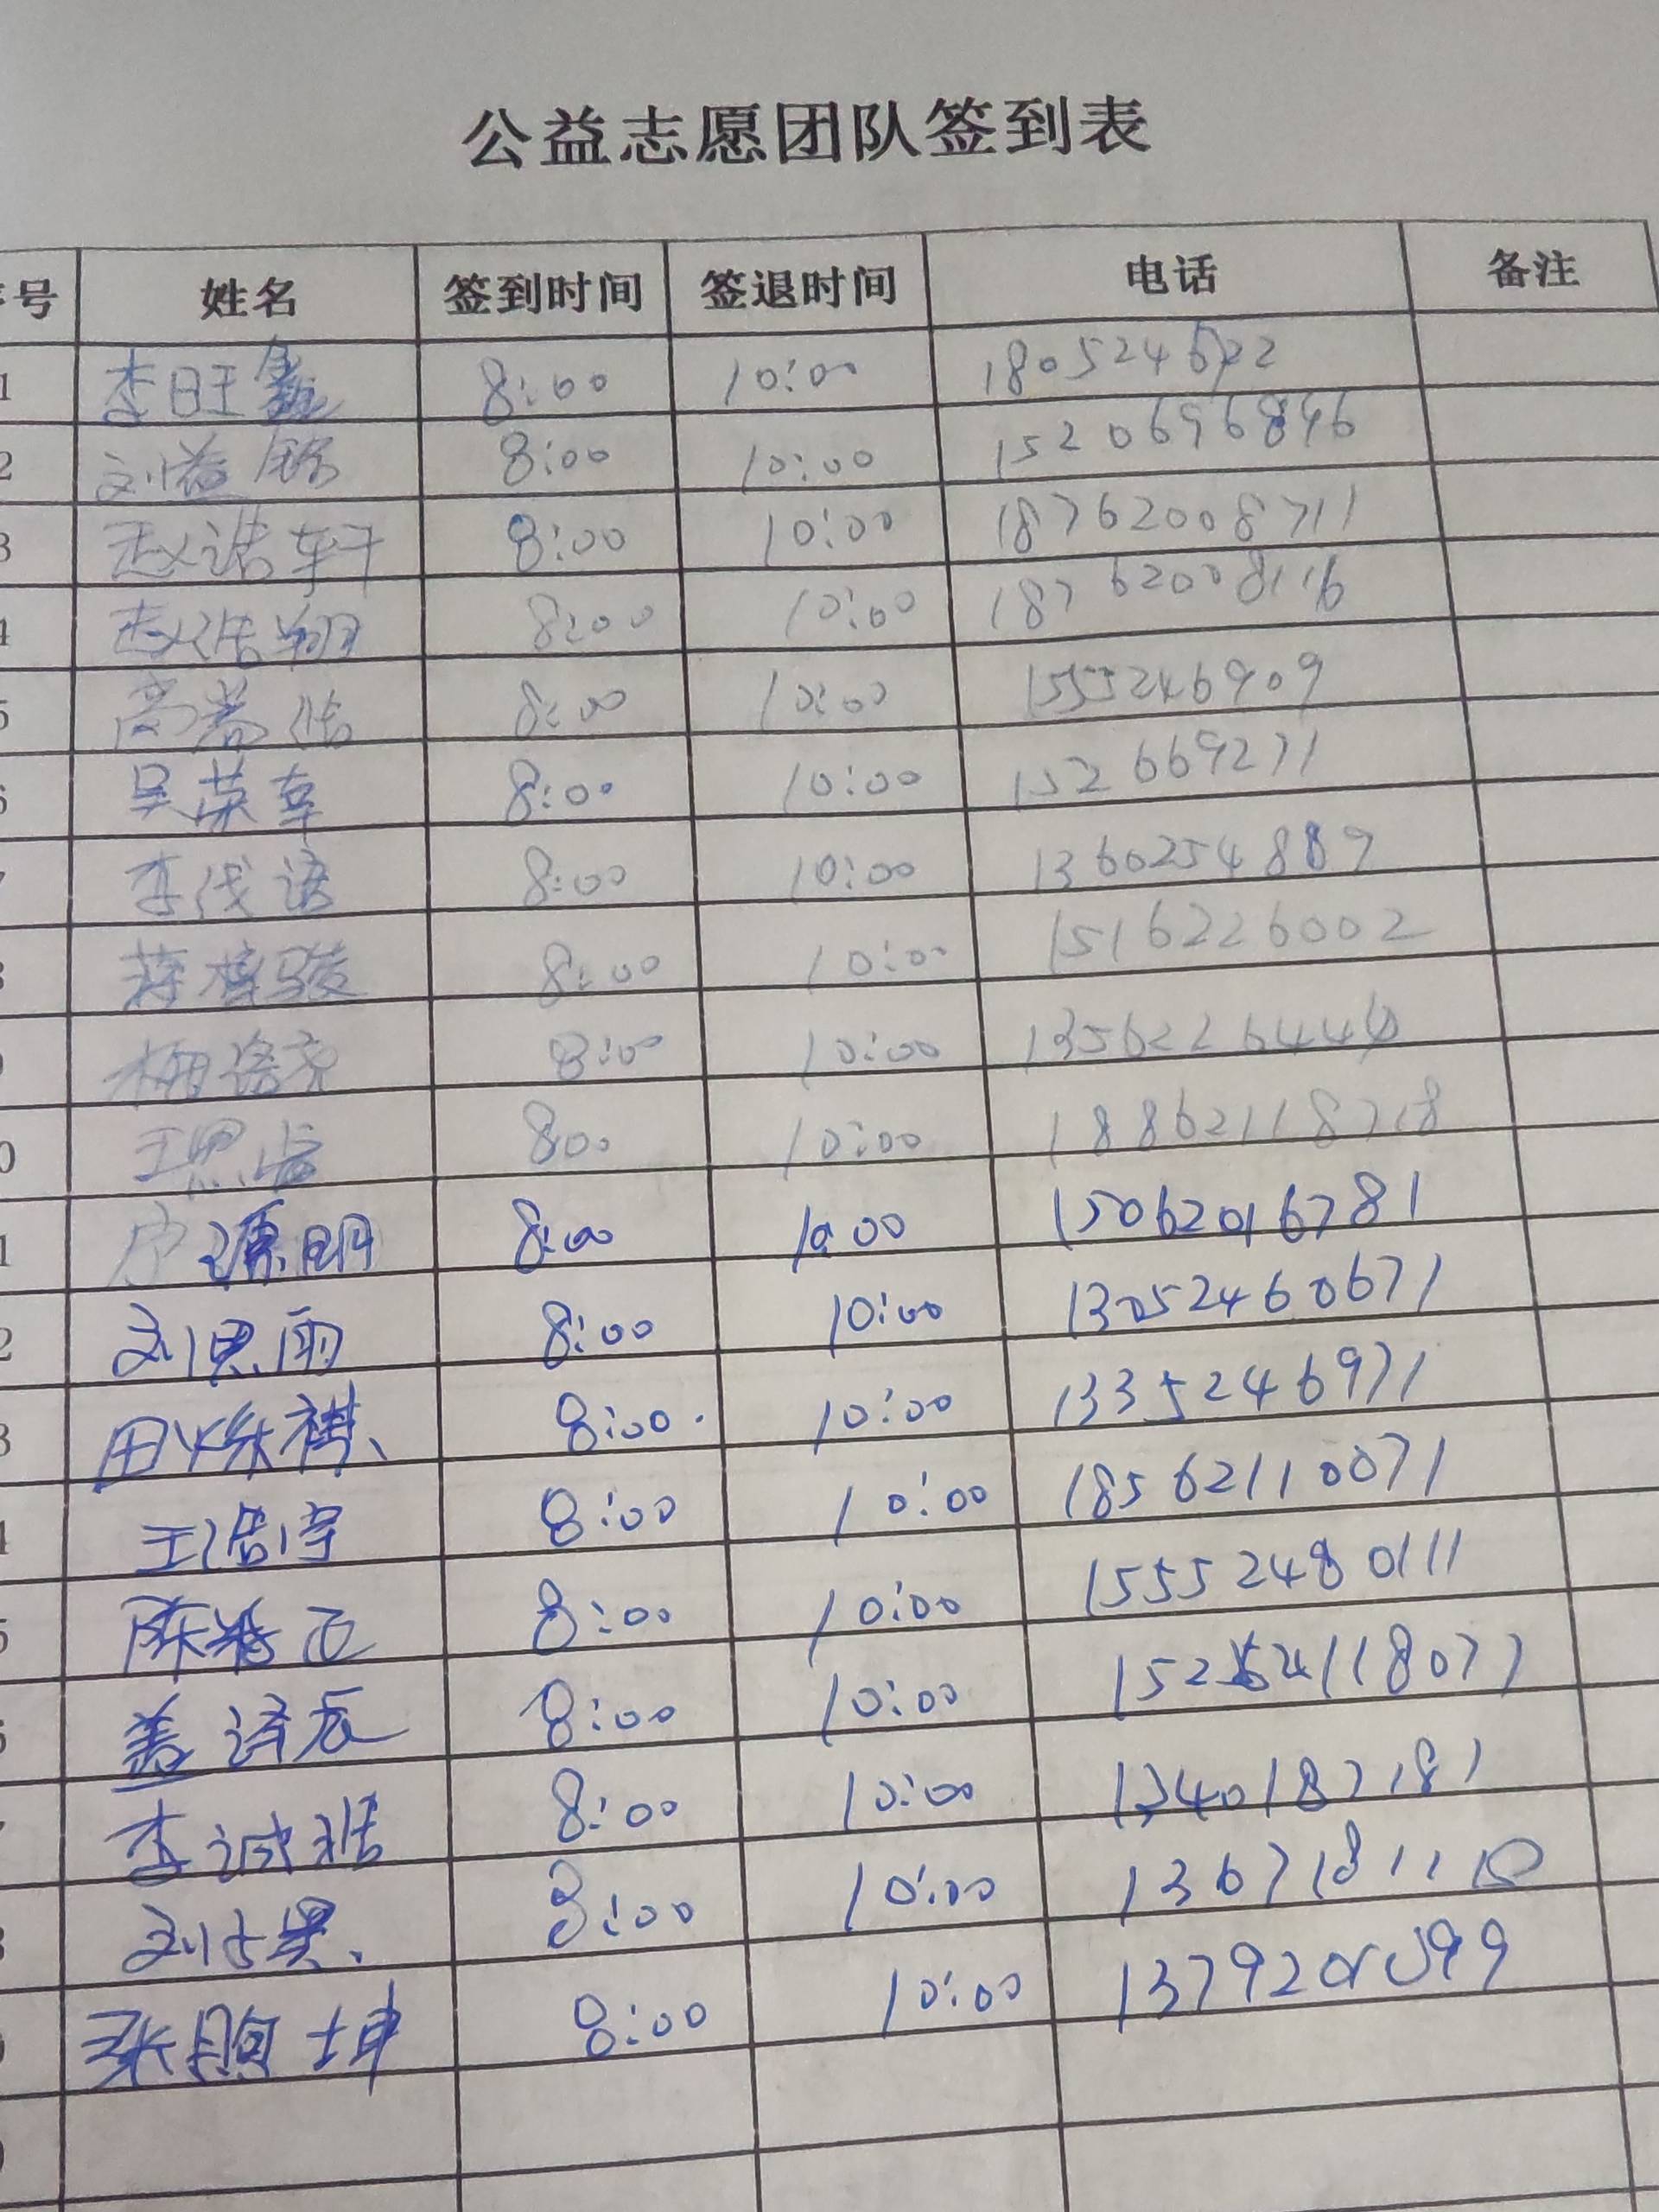 公益志愿团队签到表
号 姓名 签到时间 签退时间 电话 备注
1 李旺鑫 8:00 10:00
2 刘益铭 8:00 10:00 15206696896
3 赵诺轩 8:00 10:00 18762008711
4 赵浩翔 8:00 10:00 18762008116
5 高 8:00 10:00 1555246909
6 吴荣 8:00 10:00 152669271
7 李浅语 8:00 10:00 1360254889
8 蒋梓骏 8:00 10:00 1516226002
柳语 8:00 10:00
0 王思 800 10:00 18862118718
1 源明 8:00 10:00 15062016781
2 刘思雨 8:00 10:00 13052460671
3 田烁祺、 8:00 10:00 1335246971
4 王浩宇 8:00 10:00 18562110071
5 陈 正 8:00 10:00 15552480111
盖译辰 8:00 10:00
李诚浩 8:00 10:00 1340187181
刘 昊、 8:00 10:00 13671811
张 坤 8:00 10:00